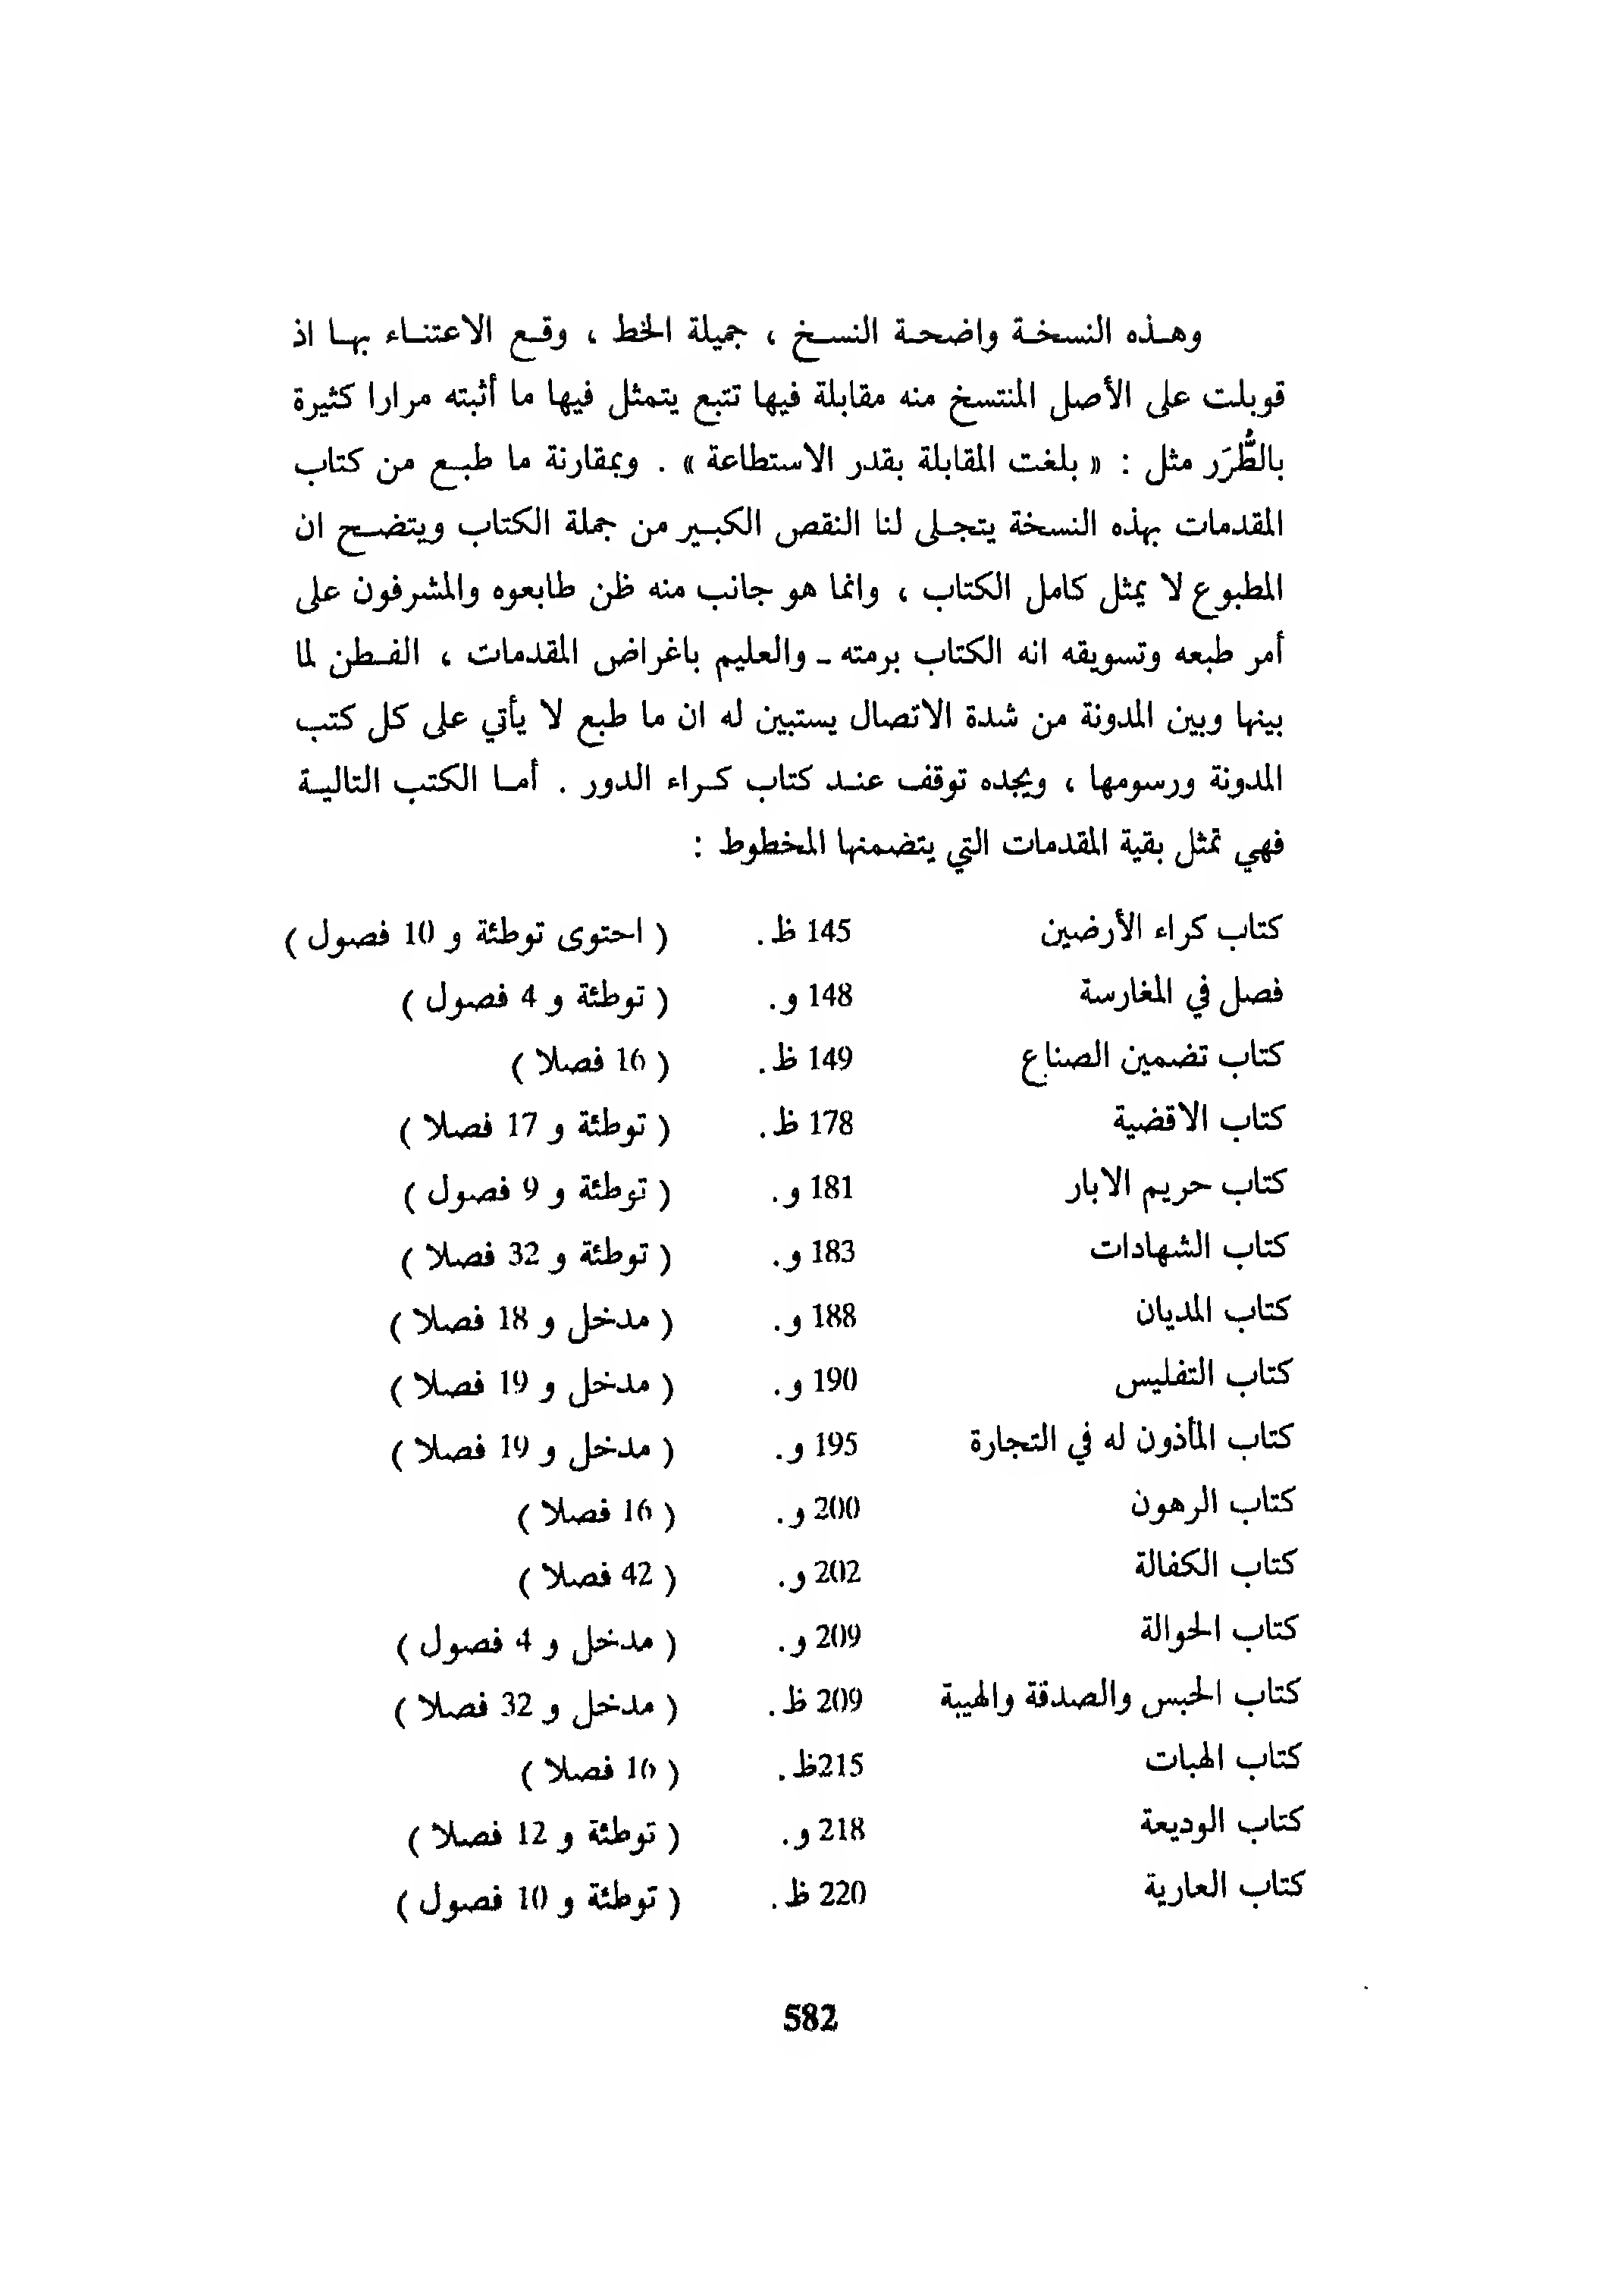 وهذه النسخة واضحة النسخ ، جميلة الخط ، وقع الاعتناء بها اذ
قوبلت على الأصل المنتسخ منه مقابلة فيها تتبع يتمثل فيها ما أثبته مرارا كثيرة
بالطُّرَر مثل : « بلغت المقابلة بقدر الاستطاعة » . وبمقارنة ما طبع من كتاب
المقدمات بهذه النسخة يتجلى لنا النقص الكبير من جملة الكتاب ويتضح ان
المطبوع لا يمثل كامل الكتاب ، وانما هو جانب منه ظن طابعوه والمشرفون على
أمر طبعه وتسويقه انه الكتاب برمته ـ والعليم باغراض المقدمات ، الفطن لما
بينها وبين المدونة من شدة الاتصال يستبين له ان ما طبع لا يأتي على كل كتب
المدونة ورسومها ، ويجده توقف عند كتاب كراء الدور . أما الكتب التالية
فهي تمثل بقية المقدمات التي يتضمنها المخطوط :
كتاب كراء الأرضين 145 ظ. ( احتوى توطئة و 10 فصول )
فصل في المغارسة 148 و. ( توطئة و 4 فصول )
كتاب تضمين الصناع 149 ظ. ( 16 فصلا )
كتاب الاقضية 178 ظ. ( توطئة و 17 فصلا )
كتاب حريم الابار 181 و. ( توطئة و 9 فصول )
كتاب الشهادات 183 و. ( توطئة و 32 فصلا )
كتاب المديان 188 و. ( مدخل و 18 فصلا )
كتاب التفليس 190 و. ( مدخل و 19 فصلا )
كتاب المأذون له في التجارة 195 و. ( مدخل و 19 فصلا )
كتاب الرهون 200 و. ( 16 فصلا )
كتاب الكفالة 202 و. ( 42 فصلا )
كتاب الحوالة 209 و. ( مدخل و 4 فصول )
كتاب الحبس والصدقة والهيبة 209 ظ. ( مدخل و 32 فصلا )
كتاب الهبات 215ظ. ( 16 فصلا )
كتاب الوديعة 218 و. ( توطئة و 12 فصلا )
كتاب العارية 220 ظ. ( توطئة و 10 فصول )
582